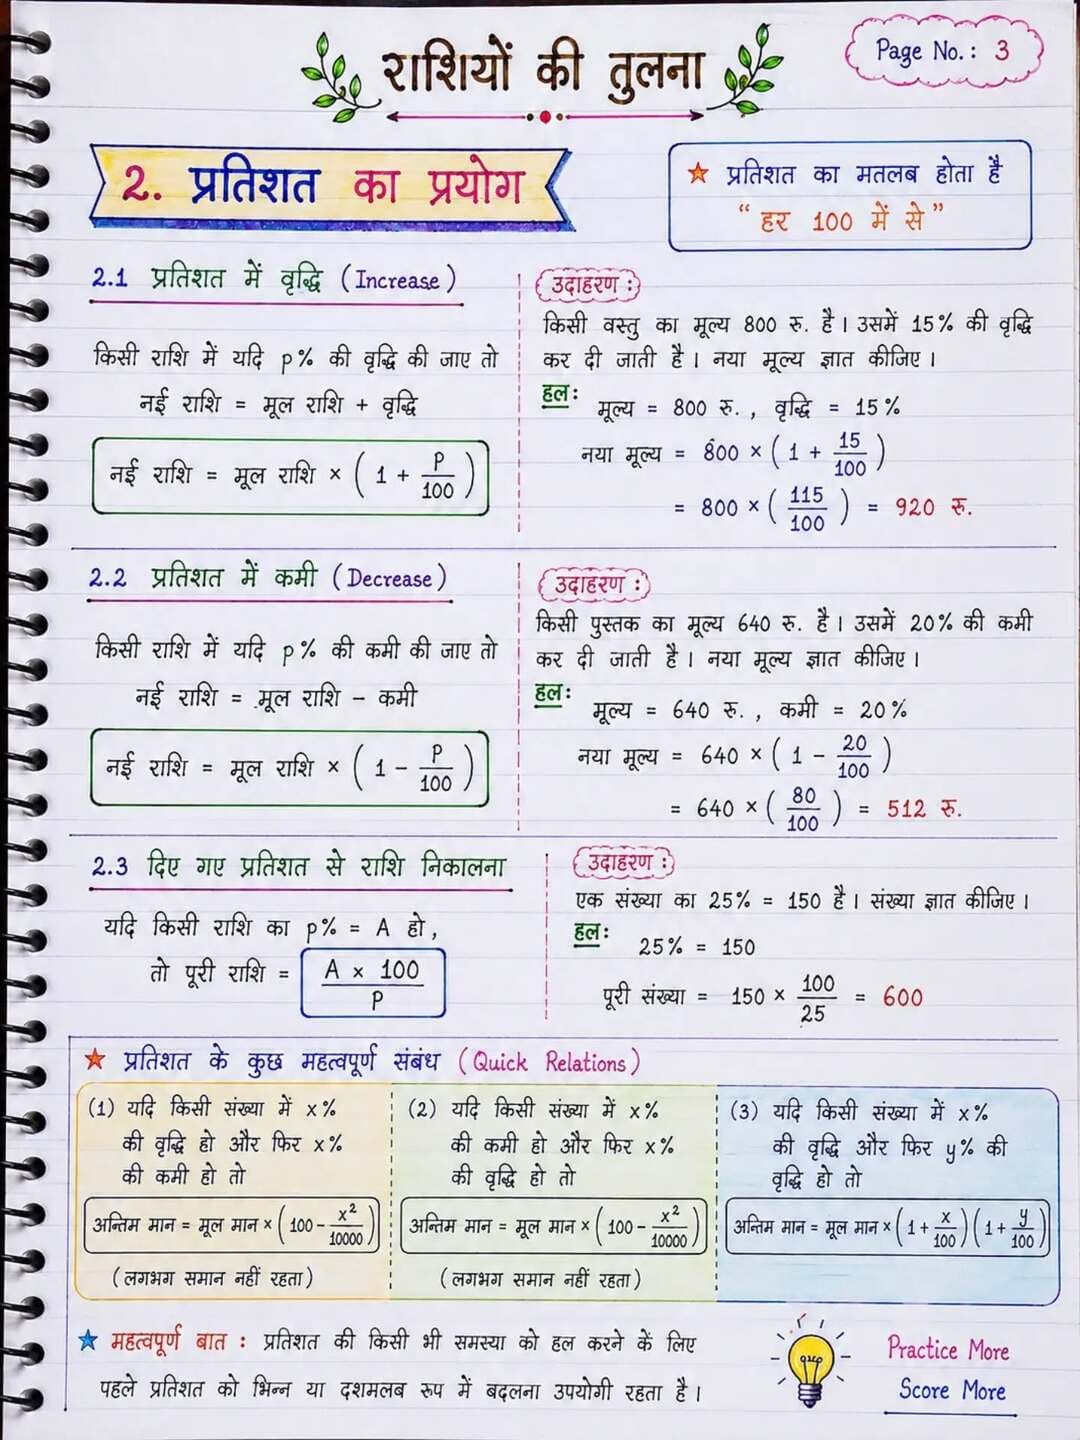 राशियों की तुलना
Page No.: 3
2. प्रतिशत का प्रयोग
★ प्रतिशत का मतलब होता है
“ हर 100 में से ”
2.1 प्रतिशत में वृद्धि (Increase)
किसी राशि में यदि p% की वृद्धि की जाए तो
नई राशि = मूल राशि + वृद्धि
नई राशि = मूल राशि × ( 1 + P/100 )
उदाहरण :
किसी वस्तु का मूल्य 800 रु. है। उसमें 15% की वृद्धि
कर दी जाती है। नया मूल्य ज्ञात कीजिए।
हल:
मूल्य = 800 रु. , वृद्धि = 15%
नया मूल्य = 800 × ( 1 + 15/100 )
= 800 × ( 115/100 ) = 920 रु.
2.2 प्रतिशत में कमी (Decrease)
किसी राशि में यदि p% की कमी की जाए तो
नई राशि = मूल राशि - कमी
नई राशि = मूल राशि × ( 1 - P/100 )
उदाहरण :
किसी पुस्तक का मूल्य 640 रु. है। उसमें 20% की कमी
कर दी जाती है। नया मूल्य ज्ञात कीजिए।
हल:
मूल्य = 640 रु. , कमी = 20%
नया मूल्य = 640 × ( 1 - 20/100 )
= 640 × ( 80/100 ) = 512 रु.
2.3 दिए गए प्रतिशत से राशि निकालना
यदि किसी राशि का p% = A हो,
तो पूरी राशि = A × 100 / P
उदाहरण :
एक संख्या का 25% = 150 है। संख्या ज्ञात कीजिए।
हल:
25% = 150
पूरी संख्या = 150 × 100/25 = 600
★ प्रतिशत के कुछ महत्वपूर्ण संबंध (Quick Relations)
(1) यदि किसी संख्या में x%
की वृद्धि हो और फिर x%
की कमी हो तो
अन्तिम मान = मूल मान × ( 100 - x²/10000 )
(लगभग समान नहीं रहता)
(2) यदि किसी संख्या में x%
की कमी हो और फिर x%
की वृद्धि हो तो
अन्तिम मान = मूल मान × ( 100 - x²/10000 )
(लगभग समान नहीं रहता)
(3) यदि किसी संख्या में x%
की वृद्धि और फिर y% की
वृद्धि हो तो
अन्तिम मान = मूल मान × ( 1 + x/100 ) ( 1 + y/100 )
★ महत्वपूर्ण बात : प्रतिशत की किसी भी समस्या को हल करने के लिए
पहले प्रतिशत को भिन्न या दशमलब रूप में बदलना उपयोगी रहता है।
Practice More
Score More